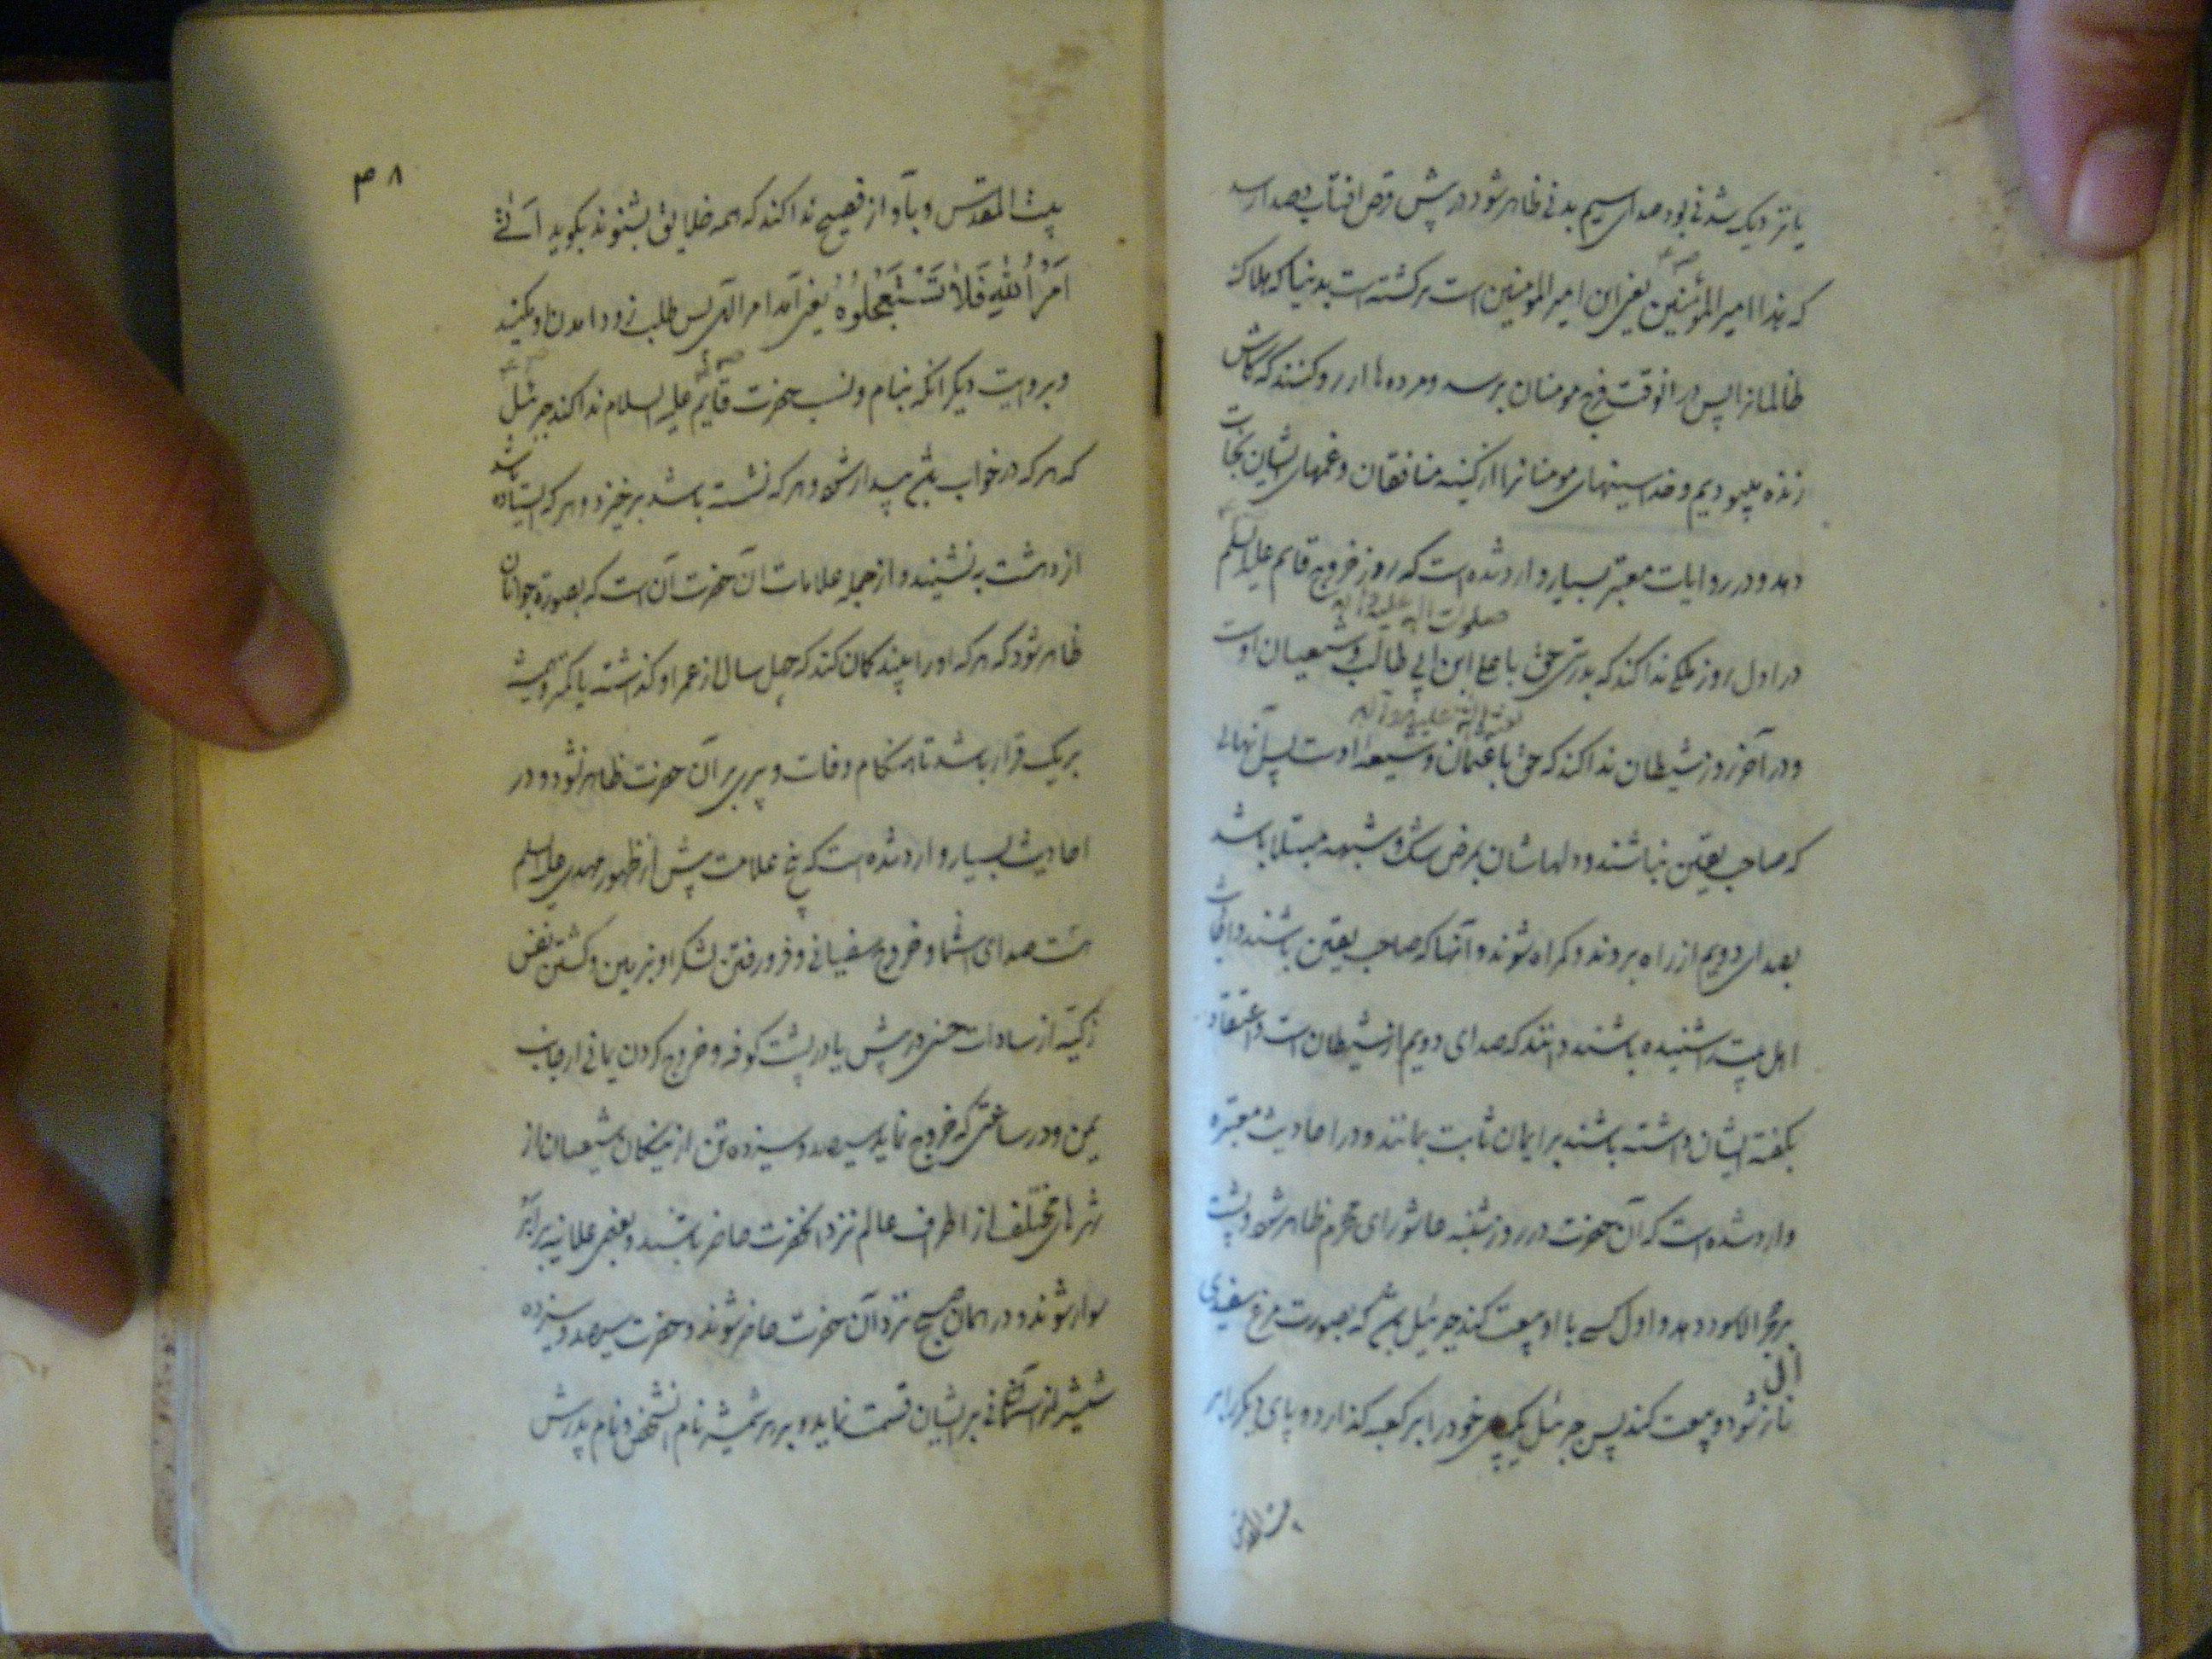 یا نزدیک شدنی بود صدای سیم بدنی ظاهر شود در پیش قرص افتاب بصدا رسد
که هذا امیر المؤمنین یعنی این امیر المومنین است برگشته است بدنیا که هلاک کند
ظالمانرا پس در انوقت فرج مومنان برسد و مرده ها ارزو کنند که کاش
زنده میبودیم و خدا سینهای مومنانرا از کینه منافقان و غمهای ایشان نجات
دهد و در روایات معتبر بسیار وارد شده است که روز خروج قایم علیه السلم
صلوات الله علیه و اله
در اول روز ملکی ندا کند که بدرستی حق با علی ابن ابی طالب و شیعیان اوست
و در آخر روز شیطان ندا کند که حق با عثمان و شیعه اوست پس آنهائی
که صاحب یقین نباشند و دلهاشان بمرض شک و شبهه مبتلا باشد
بصدای دویم از راه بروند و گمراه شوند و آنها که صاحب یقین باشند و
اهل بیت را شنیده باشند دانند که صدای دویم از شیطان است و اعتقاد
بگفته ایشان داشته باشند بر ایمان ثابت بمانند و در احادیث معتبره
وارد شده است که آن حضرت در روز شنبه عاشورای محرم ظاهر شود و پشت
بر حجر الاسود دهد و اول کسی با او بیعت کند جبرئیل باشد که بصورت مرغ سفیدی
نازل شود و بیعت کند پس جبرئیل یکپای خود را بر کعبه گذارد و پای دیگر را بر
۸ م
بیت المقدس و بآواز فصیح ندا کند که همه خلایق بشنوند بگوید اَتٰی
اَمْرُ اللّٰهِ فَلاٰ تَسْتَعْجِلُوهُ یعنی آمد امر الهی پس طلب زود امدن او مکنید
و بروایت دیگر انکه بنام و نسب حضرت قایم علیه السلام ندا کند جبرئیل
که هر که در خواب باشد بیدار شود و هر که نشسته باشد برخیزد و هر که ایستاده باشد
از دهشت بنشیند و از جمله علامات ان حضرت آن است که بصورة جوانان
ظاهر شود که هر که او را ببیند گمان کند که چهل سال از عمر او گذشته یا کمتر و همیشه
بر یک قرار باشد تا هنگام وفات و پیری بر آن حضرت ظاهر نشود و در
احادیث بسیار وارد شده است که پنج علامت پیش از ظهور مهدی علیه السلم
هست صدای اسما و خروج سفیانی و فرو رفتن لشکر او بزمین و کشتن نفس
زکیّه از سادات حسنی در پیش یا در پشت کوفه و خروج کردن یمانی از جانب
یمن و در ساعتی که خروج نماید سیصد و سیزده تن از نیکان شیعیان از
شهر های مختلف از اطراف عالم نزد انحضرت حاضر باشند و بعضی علانیه بر ابر
سوار شوند و در همان صبح نزد آن حضرت حاضر شوند و حضرت سیصد و سیزده
شمشیر آسمانی بر ایشان قسمت نماید و بر هر شمشیر نام انشخص و نام پدرش